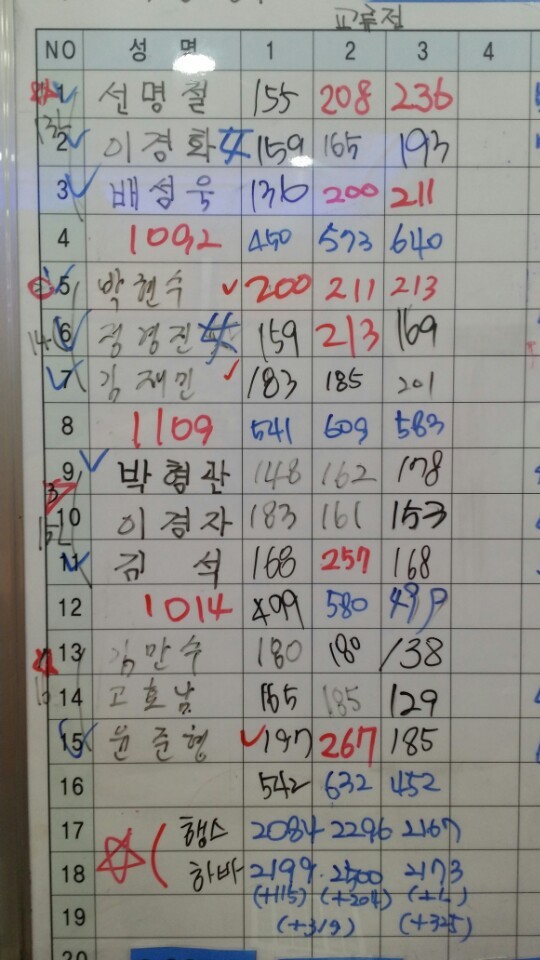 교류전
NO 성 명 1 2 3 4
1 선명철 155 208 236
2 이경화 159 165 193
3 배성욱 136 200 211
4 1092 450 573 640
5 박현수 200 211 213
6 정경진 159 213 169
7 김재민 183 185 201
8 1109 541 609 583
9 박형관 148 162 178
10 이경자 183 161 153
11 김 석 168 257 168
12 1014 499 580 499
13 김만수 180 180 138
14 고호남 165 185 129
15 윤준형 197 267 185
16 542 632 452
17 행스 2084 2296 2167
18 하바 2199 2500 2173
(+115) (+204)
19 (+319) (+325)
20